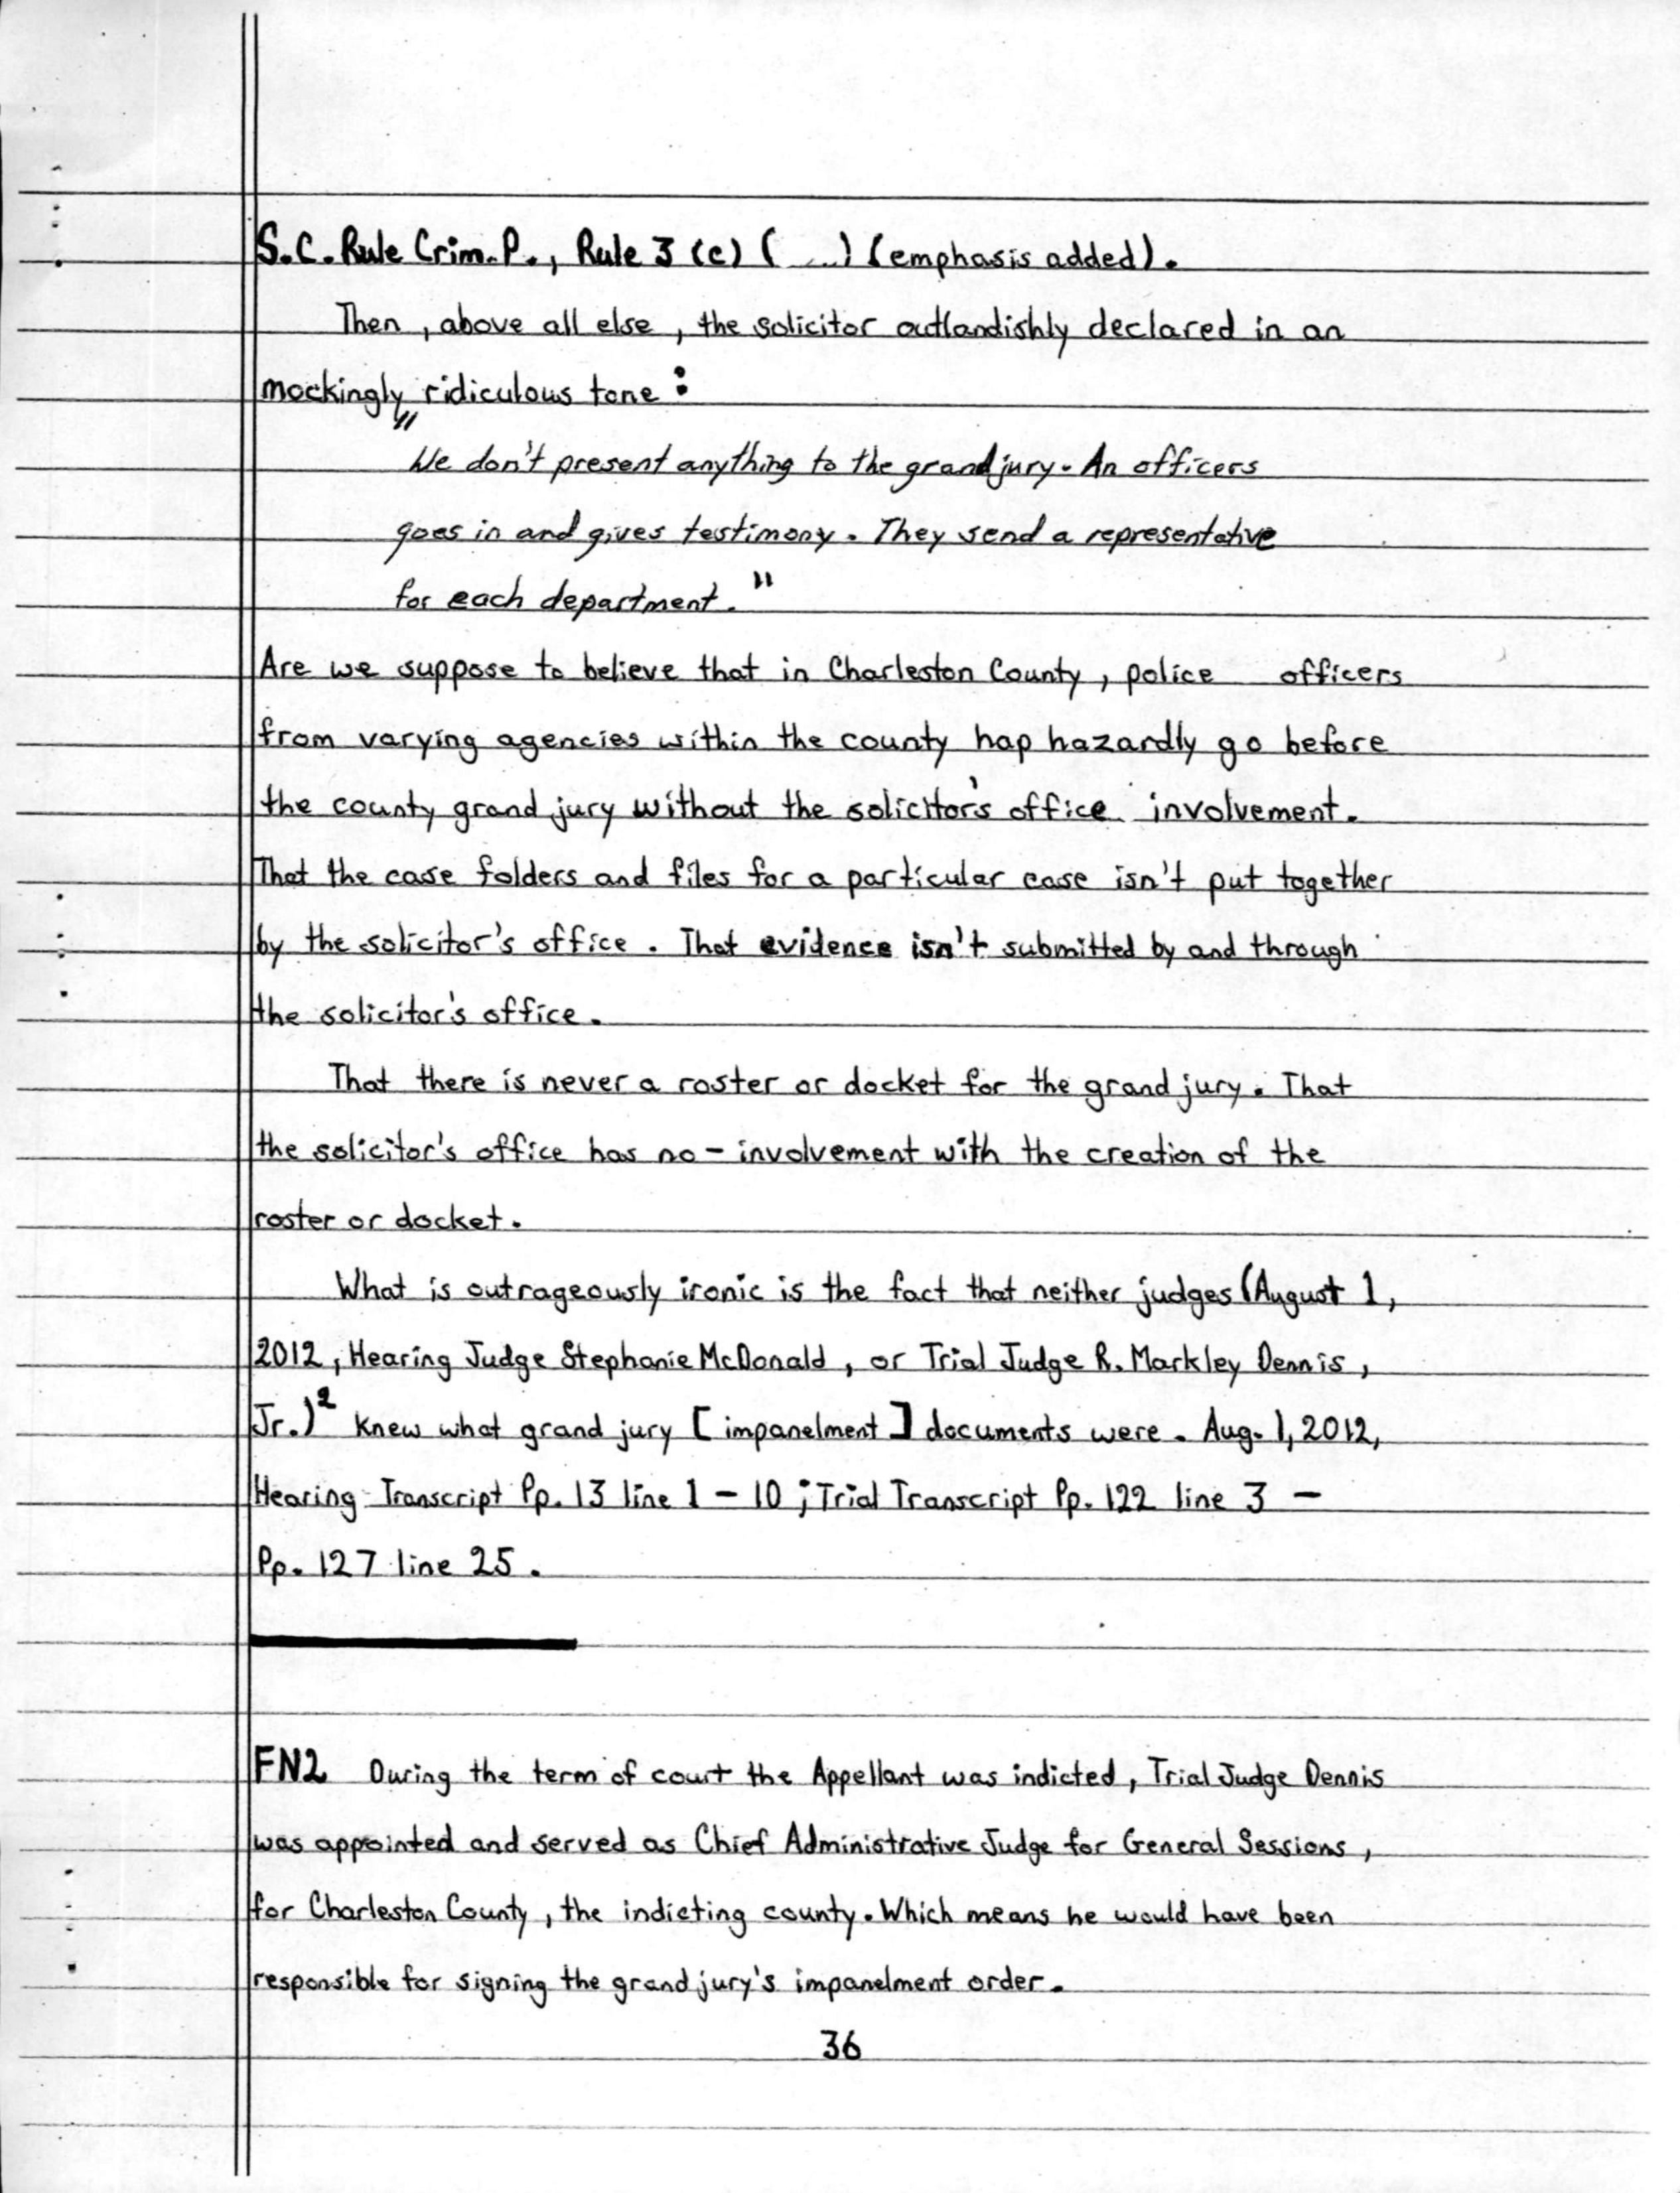 S.C. Rule Crim. P., Rule 3 (c) ( ...) (emphasis added).
Then, above all else, the solicitor outlandishly declared in an
mockingly ridiculous tone:
"We don't present anything to the grand jury. An officers
goes in and gives testimony. They send a representative
for each department."
Are we suppose to believe that in Charleston County, police officers
from varying agencies within the county hap hazardly go before
the county grand jury without the solicitor's office involvement.
That the case folders and files for a particular case isn't put together
by the solicitor's office. That evidence isn't submitted by and through
the solicitor's office.
That there is never a roster or docket for the grand jury. That
the solicitor's office has no - involvement with the creation of the
roster or docket.
What is outrageously ironic is the fact that neither judges (August 1,
2012, Hearing Judge Stephanie McDonald, or Trial Judge R. Markley Dennis,
Jr.)² knew what grand jury [impanelment] documents were. Aug. 1, 2012,
Hearing Transcript Pp. 13 line 1 - 10; Trial Transcript Pp. 122 line 3 -
Pp. 127 line 25.
FN2 During the term of court the Appellant was indicted, Trial Judge Dennis
was appointed and served as Chief Administrative Judge for General Sessions,
for Charleston County, the indicting county. Which means he would have been
responsible for signing the grand jury's impanelment order.
36